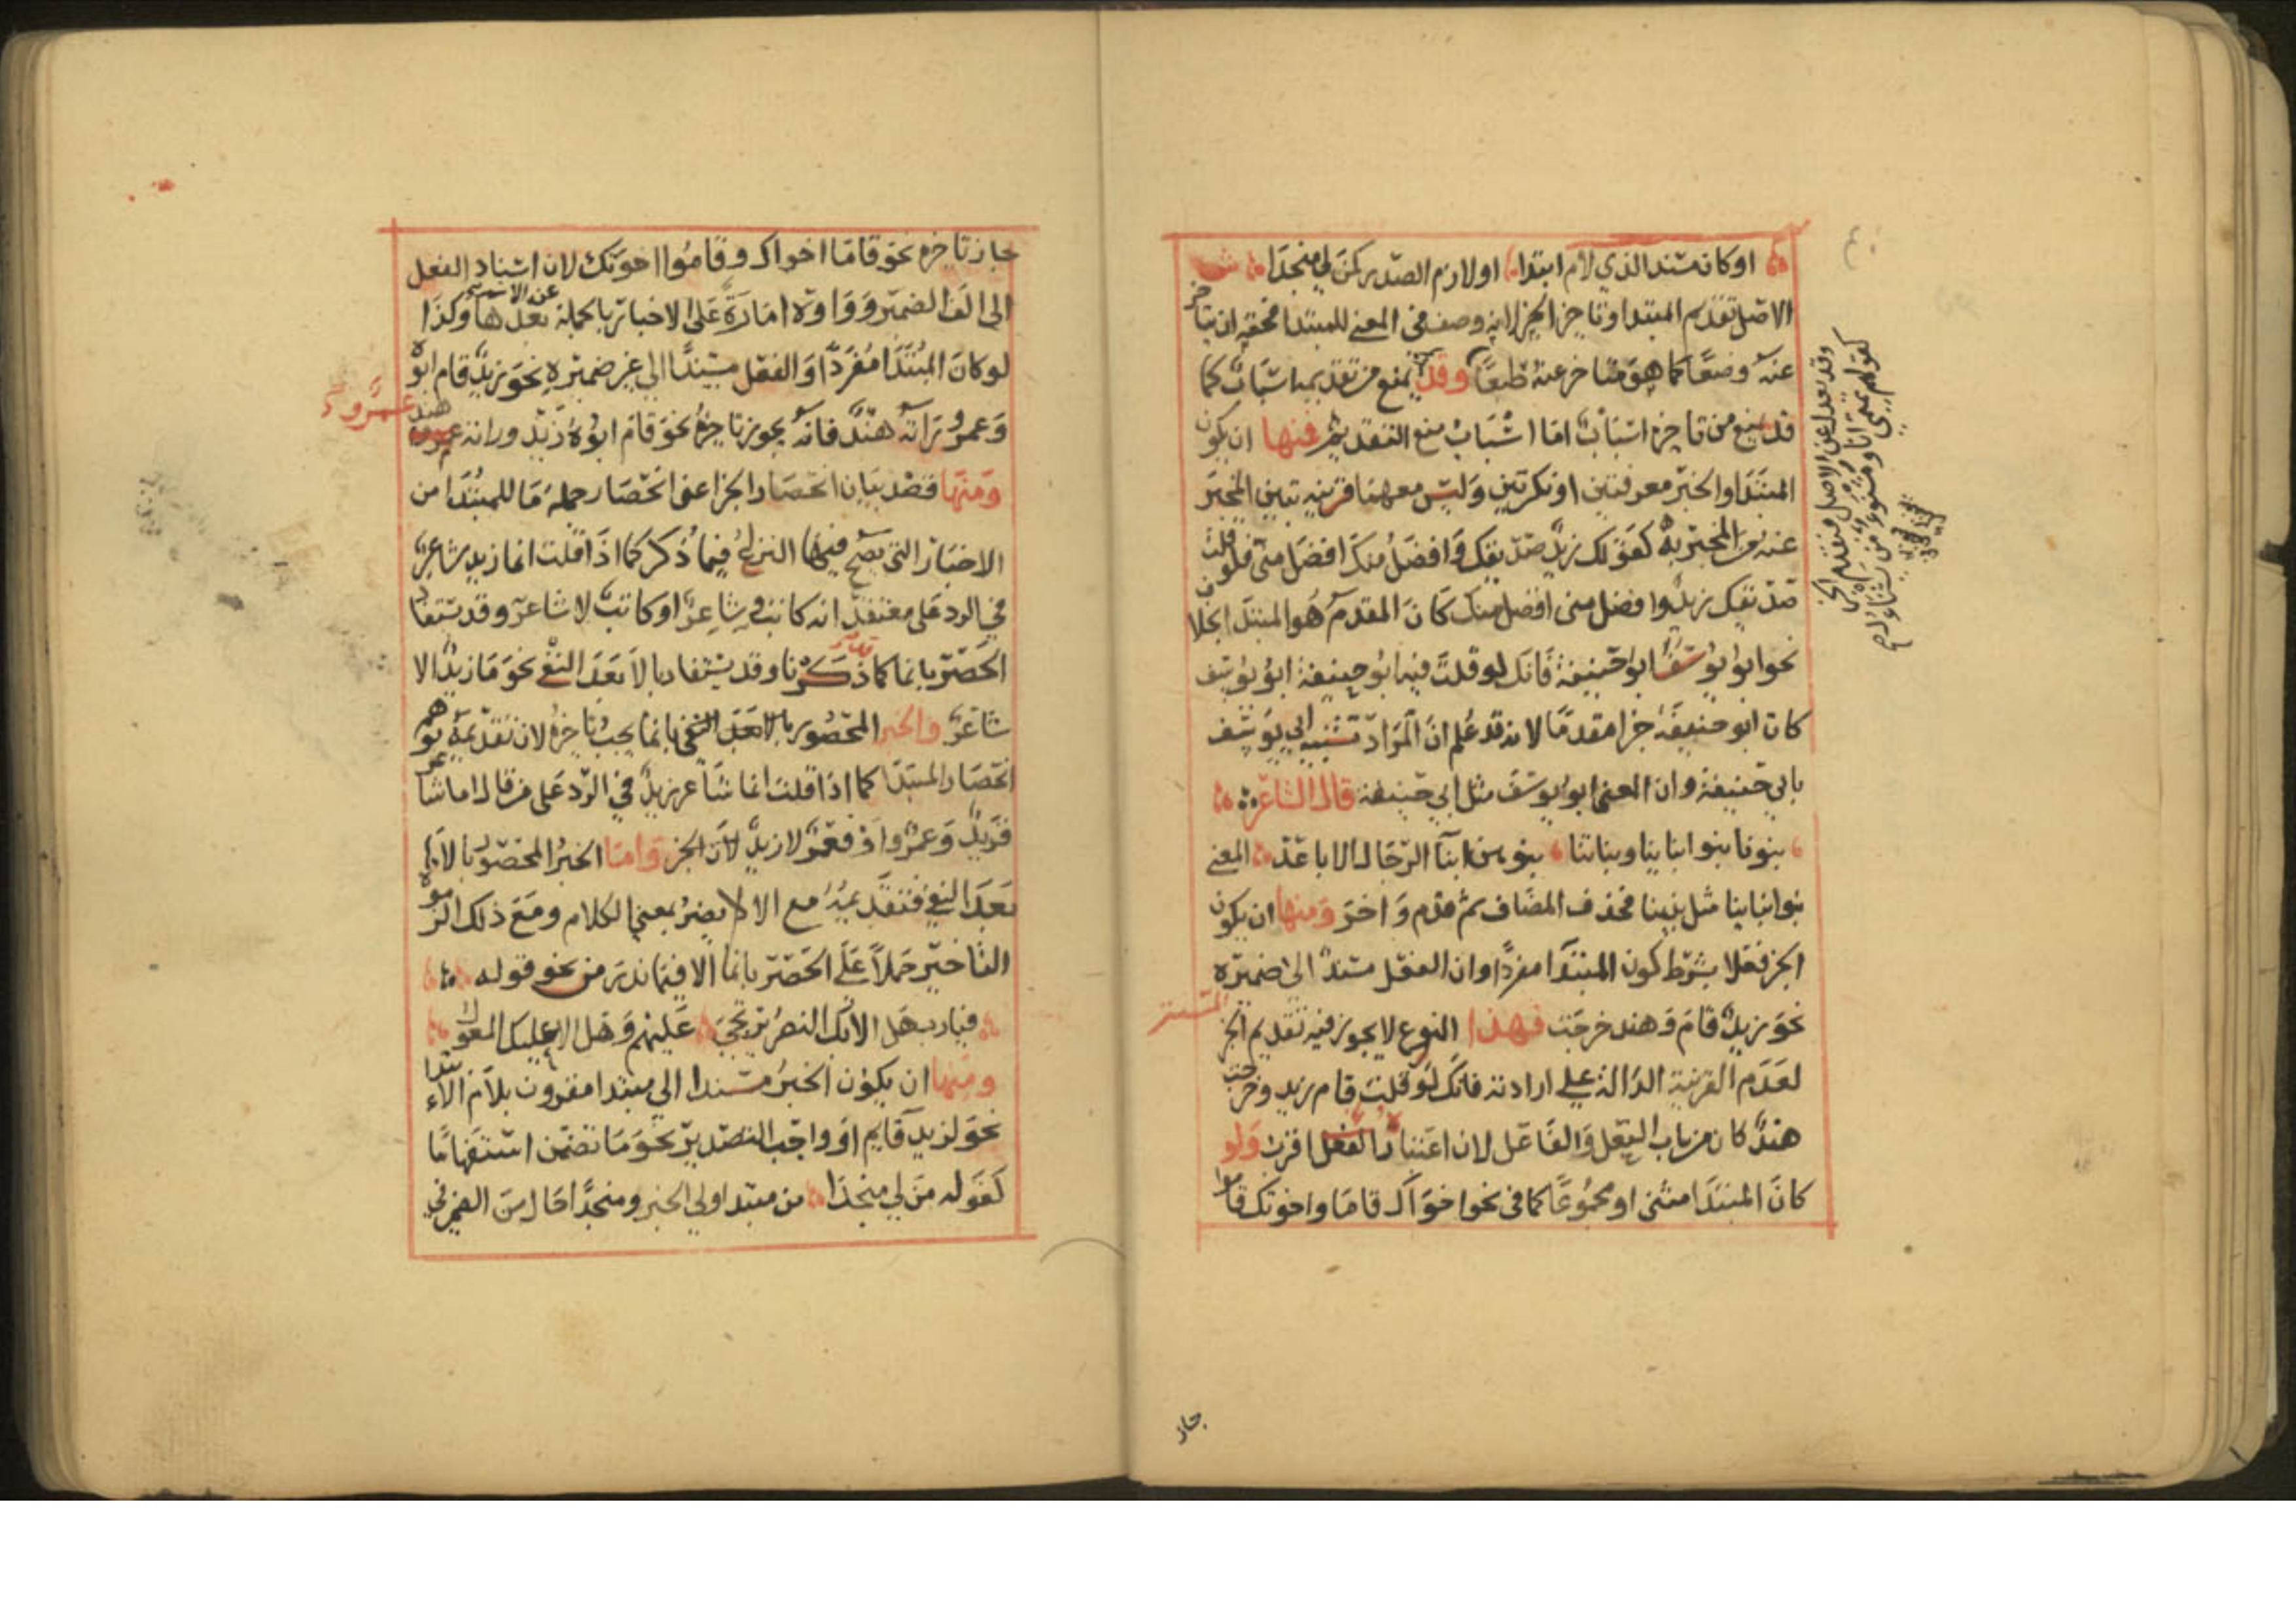 او كان مسندا لذي لام ابتدا او لازم الصدر كمن لي منجدا ش
الاصل تقديم المبتدا وتاخير الخبر لانه وصف في المعنى للمبتدا فحقه ان يتاخر
عنه وضعا كما هو متاخر عنه طبعا وقد يمنع من تقديمه اسباب كما
قد يمنع من تاخيره اسباب اما اسباب منع التقديم فمنها ان يكون
المبتدا والخبر معرفتين او نكرتين وليس معهما قرينه تبين المخبر
عنه من المخبر به كقولك زيد صديقك وافضل منك افضل مني فلو قلت
صديقك زيد وافضل مني افضل منك كان المقدم هو المبتدا بخلاف
نحو ابو يوسف ابو حنيفة فانك لو قلت فيه ابو حنيفة ابو يوسف
كان ابو حنيفة خبرا مقدما لانه قد علم ان المراد تشبيه ابي يوسف
بابي حنيفة وان المعنى ابو يوسف مثل ابي حنيفة قال الشاعر
بنونا بنو ابناينا وبناتنا بنوهن ابنآ الرجال الاباعد المعنى
بنو ابناينا مثل بنينا فحذف المضاف ثم قدم واخر ومنها ان يكون
الخبر فعلا بشرط كون المبتدا مفردا وان الفعل مسند الى ضميره
المستتر
نحو زيد قام وهند خرجت فهذا النوع لا يجوز فيه تقديم الخبر
لعدم القرينة الدالة على ارادته فانك لو قلت قام زيد وخرجت
هند كان من باب الفعل والفاعل لان اعتبار الفعل اقرب ولو
كان المبتدا مثنى او مجموعا كما في نحو اخواك قاما واخوتك قاموا
جاز
وقد يعدل عن الاصل فيتقدم الخبر
كقولهم تميمي انا ومشنوء من يشناؤك
جاز تاخيره نحو قاما اخواك وقاموا اخوتك لان اسناد الفعل
الى الف الضمير وواوه امارة على الاخبار بالجملة عن الاسم بعدها وكذا
لو كان المبتدا مفردا والفعل مسندا الى غير ضميره نحو زيد قام ابوه
وعمرو راته هند فانه يجوز تاخيره نحو قام ابوه زيد وراته هند
عمرو
ومنها قصد بيان انحصار الخبر اعني انحصار جملة ما للمبتدا من
الاخبار التي يصح فيها النزاع فيما ذكر كما اذا قلت انما زيد شاعر
في الرد على معتقد انه كاتب وشاعر او كاتب لا شاعر وقد يستفاد
الحصر بانما كما ذكرنا وقد يستفاد بالا بعد النفي نحو ما زيد الا
شاعر والخبر المحصور بالا بعد النفي بانما يجب تاخيره لان تقديمه يوهم
انحصار المبتدا كما اذا قلت انما شاعر زيد في الرد على من قال اما شاعر
فزيد وعمرو او فعمرو لا زيد لان الخبر واما الخبر المحصور بالا
بعد النفي فتقديمه مع الا لا يضر بمعنى الكلام ومع ذلك الزموه
التاخير حملا على الحصر بانما الا فيما ندر من نحو قوله
فيارب هل الا بك النصر يرتجى عليهم وهل الا عليك المعول
ومنها ان يكون الخبر مسندا الى مبتدا مقرون بلام الابتدا
نحو لزيد قايم او واجب التصدير نحو ما تضمن استفهاما
كقوله من لي منجدا من مبتدا ولي الخبر ومنجدا حال من الضمير في